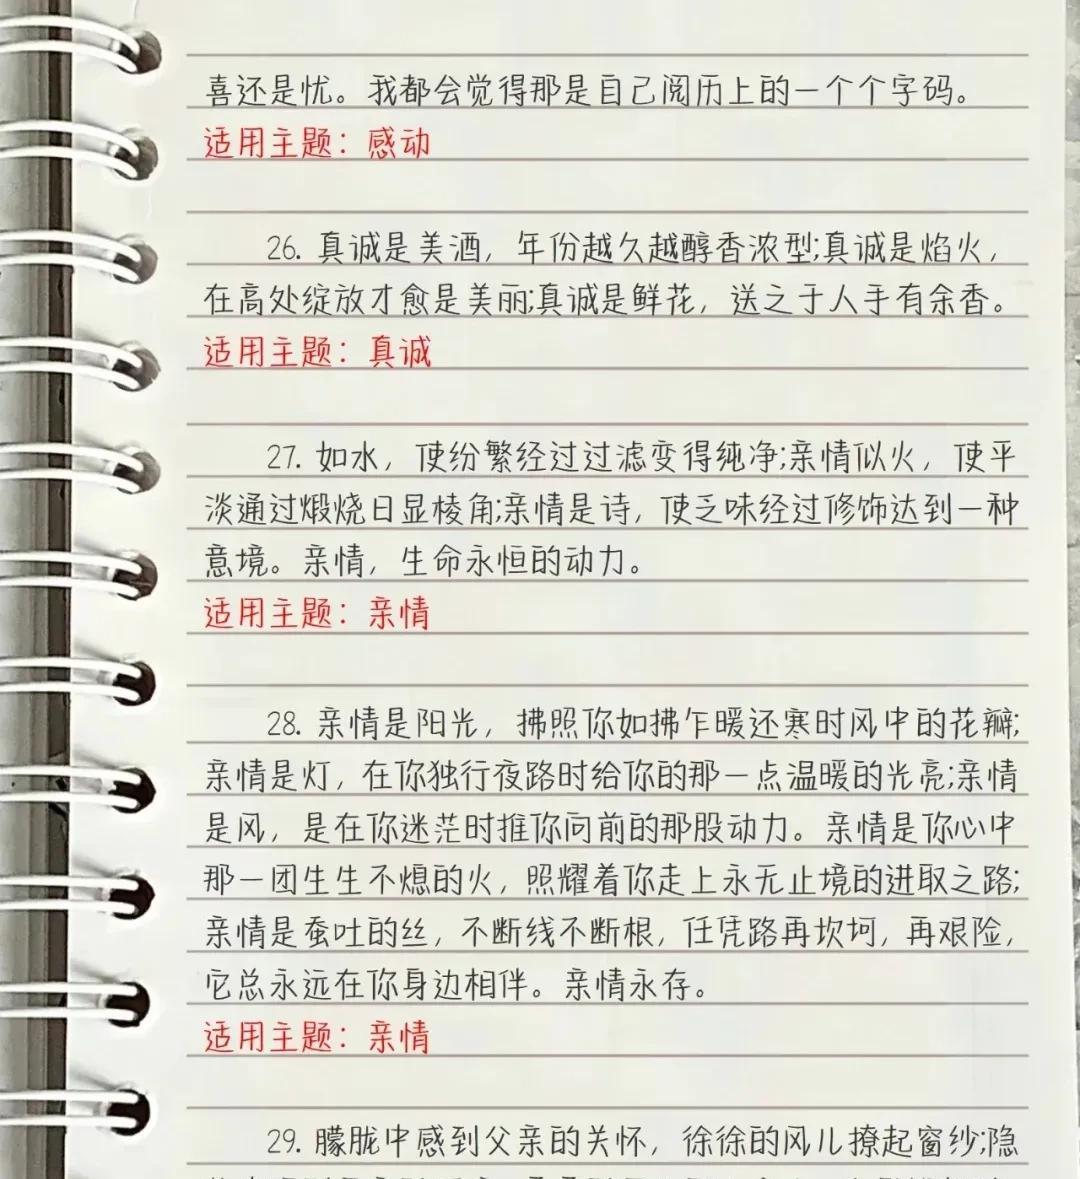 喜还是忧。我都会觉得那是自己阅历上的一个个字码。
适用主题：感动
26. 真诚是美酒，年份越久越醇香浓型;真诚是焰火，
在高处绽放才愈是美丽;真诚是鲜花，送之于人手有余香。
适用主题：真诚
27. 如水，使纷繁经过过滤变得纯净;亲情似火，使平
淡通过煅烧日显棱角;亲情是诗，使乏味经过修饰达到一种
意境。亲情，生命永恒的动力。
适用主题：亲情
28. 亲情是阳光，拂照你如拂乍暖还寒时风中的花瓣;
亲情是灯，在你独行夜路时给你的那一点温暖的光亮;亲情
是风，是在你迷茫时推你向前的那股动力。亲情是你心中
那一团生生不熄的火，照耀着你走上永无止境的进取之路;
亲情是蚕吐的丝，不断线不断根，任凭路再坎坷，再艰险，
它总永远在你身边相伴。亲情永存。
适用主题：亲情
29. 朦胧中感到父亲的关怀，徐徐的风儿撩起窗纱;隐